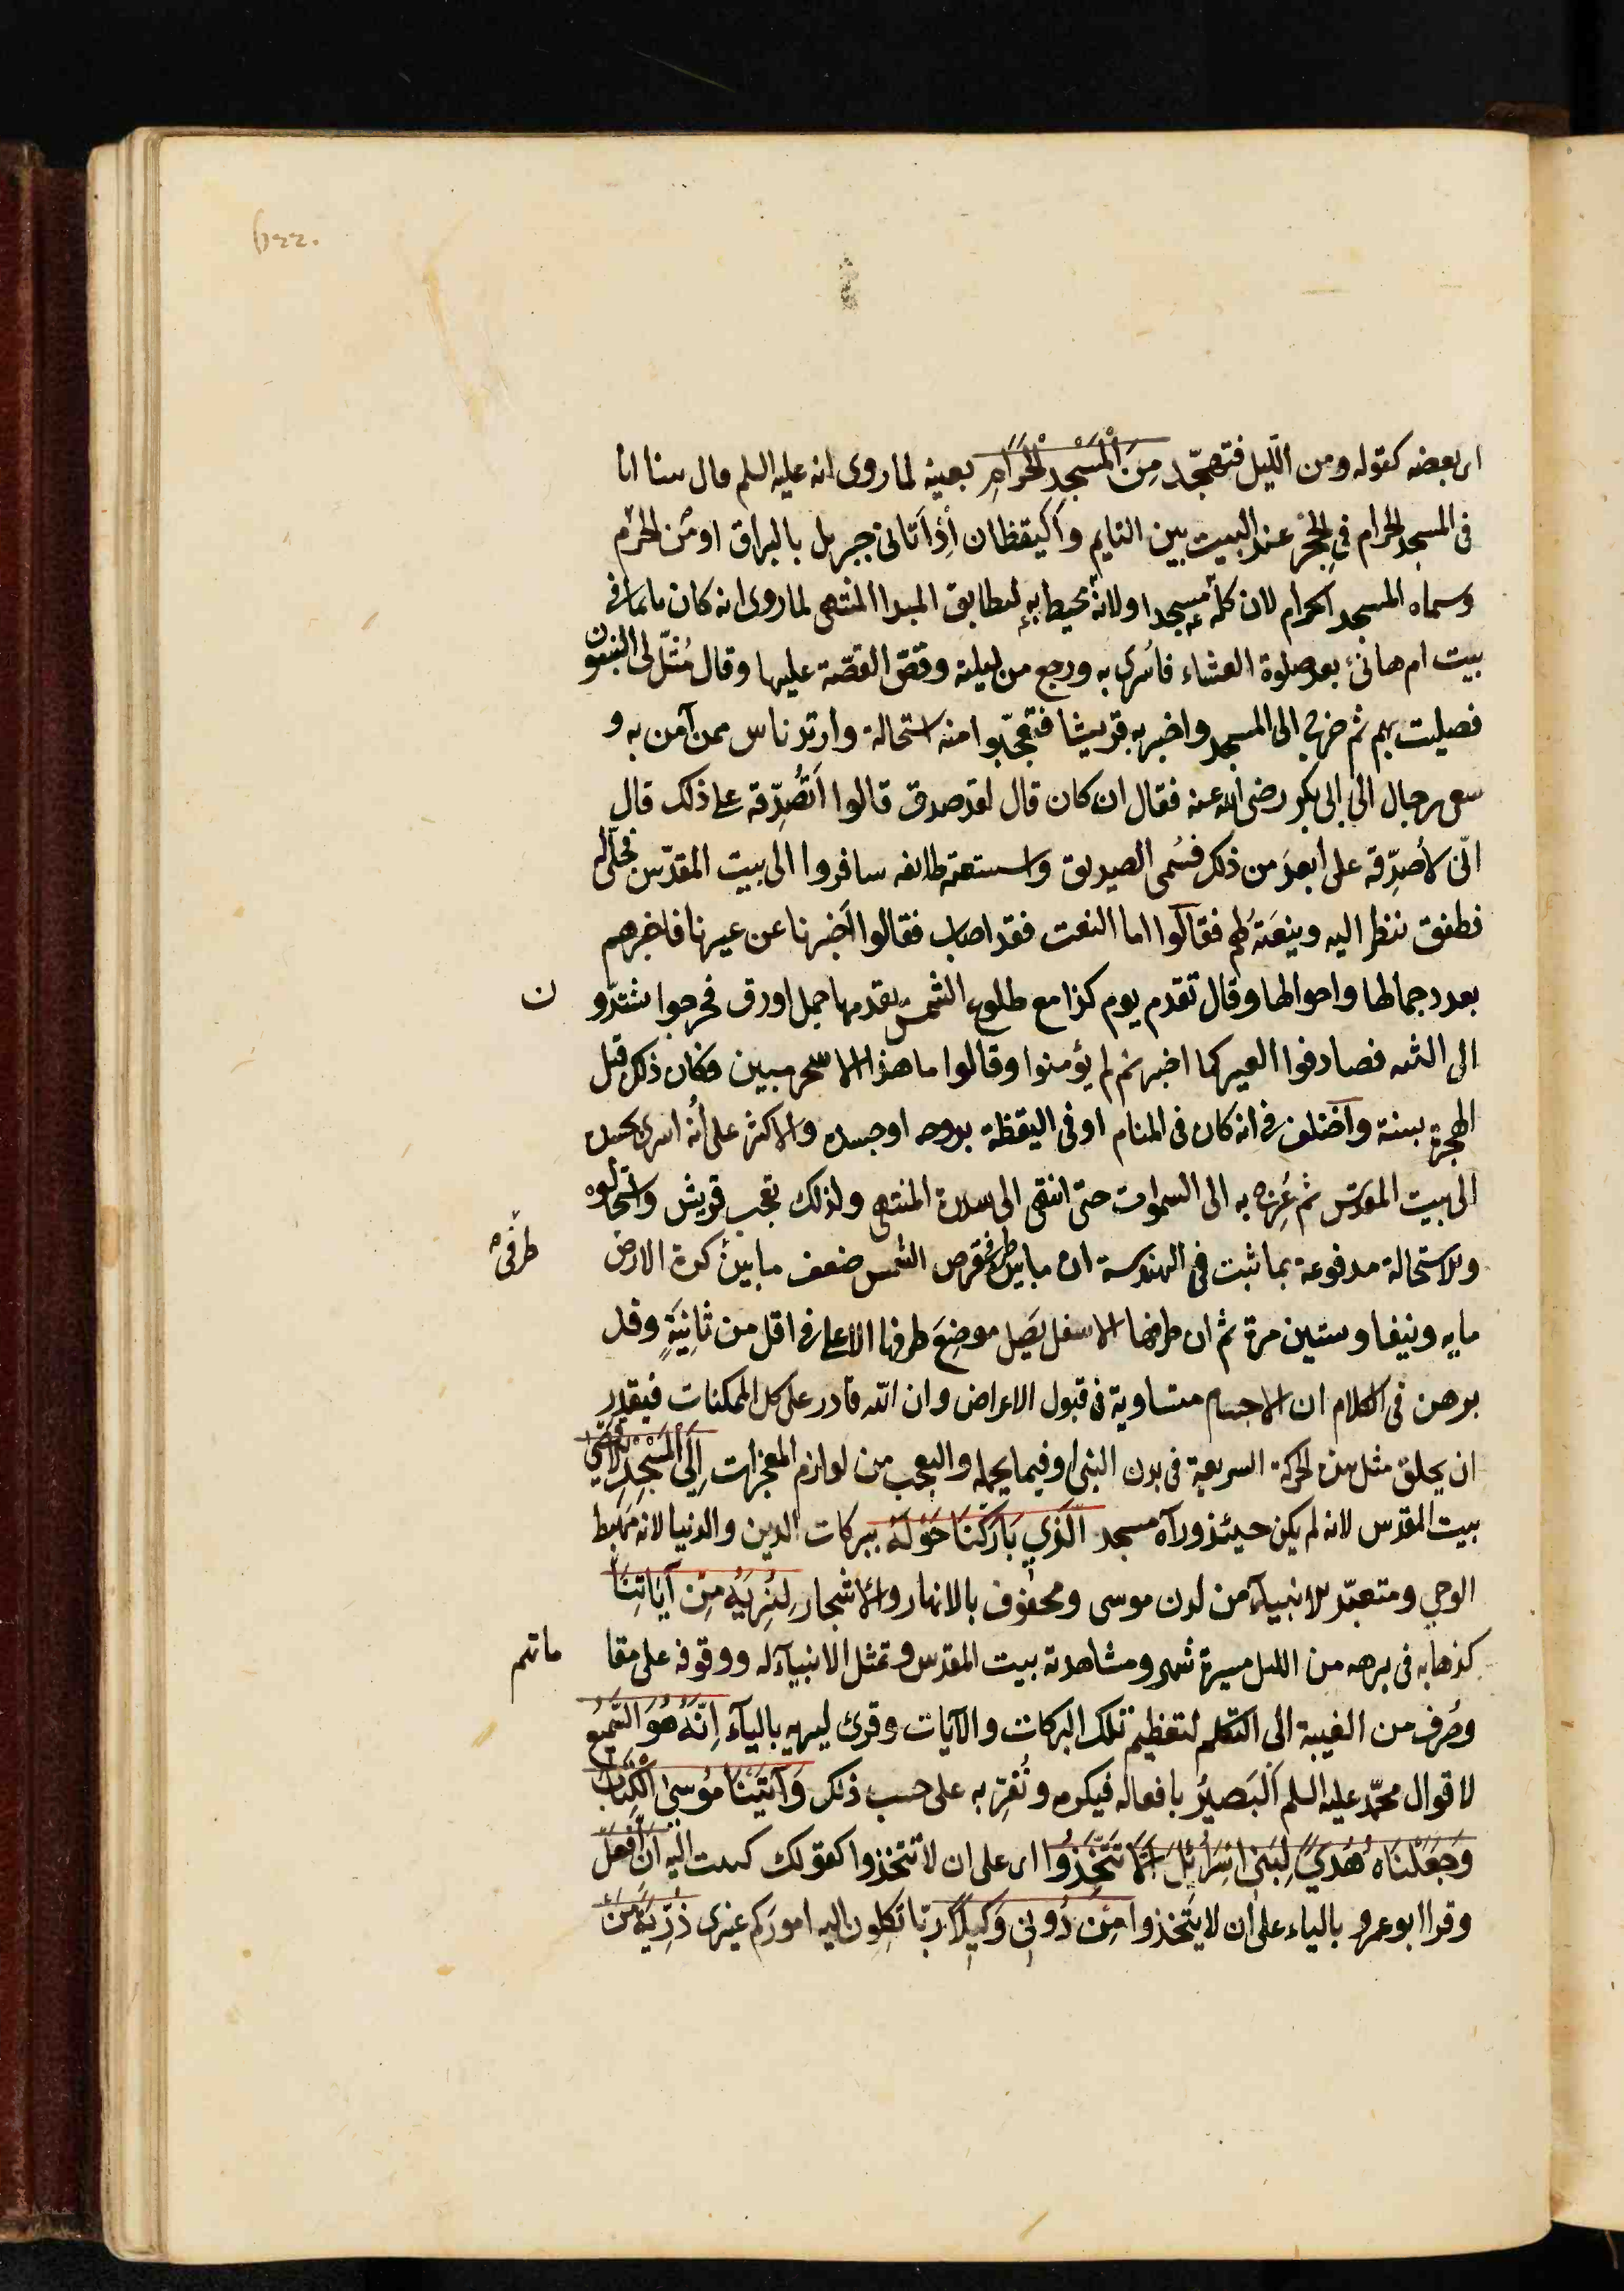 اى بعضه كقوله ومن الليل فتهجّد مِنَ الْمَسْجِدِ الْحَرَامِ بعينه لما روى انه عليه السلم قال بينا انا
فى المسجد الحرام فى الحِجْر عند البيت بين النايم واليقظان أِذ أتانى جبريل بالبراق او من الحرم
وسماه المسجد الحرام لان كلّه مسجد او لانه محيط به ليطابق المبدا المنتهى لما روى انه كان نايما فى
بيت ام هانئ بعد صلوة العشاء فاسرى به ورجع من ليلته وقصّ القصّة عليها وقال مُثّل لى النبيون
فصليت بهم ثم خرج الى المسجد واخبر به قريشا فتعجّبوا منه استحالة وارتد ناس ممن آمن به و
سعى رجال الى ابى بكر رضى الله عنه فقال ان كان قال لقد صدق قالوا أتُصَدِّقه على ذلك قال
انّى لأصدِّقه على أبعدَ من ذلك فسُمى الصديق واستنعته طائفه سافروا الى بيت المقدّس فجُلّى له
فطفق ننظر اليه وينعَته لهم فقالوا اما النعت فقد اصاب فقالوا أخبرنا عن عيرنا فاخبرهم
بعدد جمالها واحوالها وقال تقدم يوم كذا مع طلوع الشمس يقدمها جمل اورق فخرجوا يشتدّو ن
الى الثنيه فصادفوا العير كما اخبر ثم لم يؤمنوا وقالوا ما هذا الا سحر مبين وكان ذلك قبل
الهجرة بسنة واختلف فى انه كان فى المنام او فى اليقظة بروحه او جسده والاكثر على أنه اسرى بجسده
الى بيت المقدّس ثم عُرِج به الى السموات حتى انتهى الى سدرة المنتهى ولذلك تعجب قريش واستحالوه
والاستحالة مدفوعة بما ثبت فى الهندسة ان ما بين طرفى قرص الشمس ضعف ما بين كرة الارض
طرفى
مايه ونيفا وستين مرة ثم ان طرفها الاسفل يَصِل موضِعَ طرفها الاعلى فى اقل من ثانِيَةٍ وقد
برهن فى الكلام ان الاجسام متساوية فى قبول الاعراض وان الله قادر على كل الممكنات فيقدر
ان يخلق مثل هذه الحركة السريعة فى بدن النبى او فيما يحمله والتعجب من لوازم المعجزات اِلَى الْمَسْجِدِ الْاَقْصَى
بيت المقدس لانه لم يكن حينئذ ورآه مسجد الَّذي بَارَكْنَا حَوْلَهُ ببركات الدين والدنيا لانه مهبط
الوحى ومتعبّد للانبيآء من لدن موسى ومحفوف بالانهار والأشجار لِنُرِيَهُ مِنْ آيَاتِنَا
كذهابه فى برهه من الليل مسيرة شهر ومشاهدته بيت المقدس وتمثل الانبيآء له ووقوفه على مقا ماتهم
وصُرف من الغيبة الى التكلم لتعظيم تلك البركات والآيات وقرئ ليريه باليآء اِنَّهُ هُوَ السَّمِيعُ
لاقوال محمّد عليه السلم الْبَصيرُ بافعاله فيكرمه وتُقرِّبه على حسب ذلك وَآتَيْنَا مُوسَى الْكِتَابَ
وَجَعَلْنَاهُ هُدىً لِبَنى اِسْرَائلَ اَلَّا تَتَّخِذُوا اى على ان لا تتخذوا كقولك كتبت اليه أن افعل
وقرا ابو عمرو بالياء على أن لا يتخذوا مِنْ دُونى وَكِيلاً ربّا تكلون اليه اموركم غيرى ذُرِّيَّةَ مَنْ